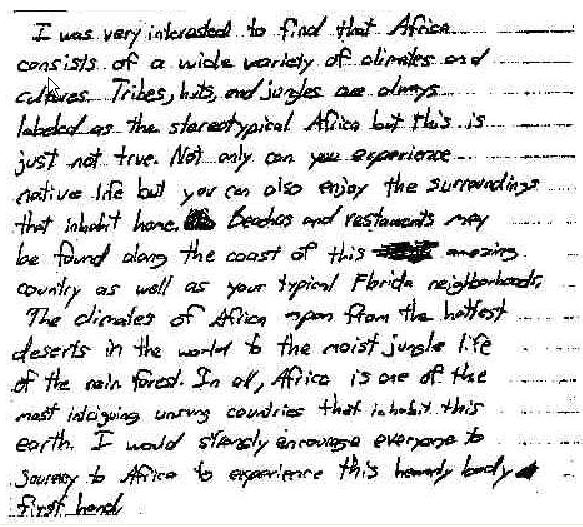 I was very interested to find that Africa
consists of a wide variety of climates and
cultures. Tribes, huts, and jungles are always
labeled as the stareotypical Africa but this is
just not true. Not only can you experience
native life but you can also enjoy the surroundings
that inhabit home. Beaches and restaurants may
be found along the coast of this amazing
country as well as your typical Florida neighborhoods.
The climates of Africa span from the hottest
deserts in the world to the moist jungle life
of the rain forest. In all, Africa is one of the
most intriguing unsung countries that inhabit this
earth. I would strongly encourage everyone to
journey to Africa to experience this heavenly body
first hand